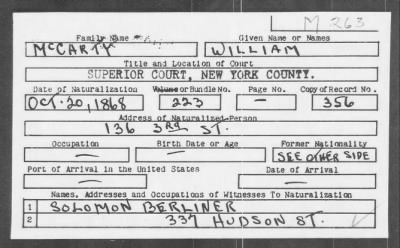 M 263
Family Name Given Name or Names
McCARTY WILLIAM
Title and Location of Court
SUPERIOR COURT, NEW YORK COUNTY.
Date of Naturalization Volume or Bundle No. Page No. Copy of Record No.
OCT. 20, 1868 223 — 356
Address of Naturalized Person
136 3RD ST.
Occupation Birth Date or Age Former Nationality
— — SEE OTHER SIDE
Port of Arrival in the United States Date of Arrival
— —
Names, Addresses and Occupations of Witnesses To Naturalization
1 SOLOMON BERLINER
2 337 HUDSON ST.